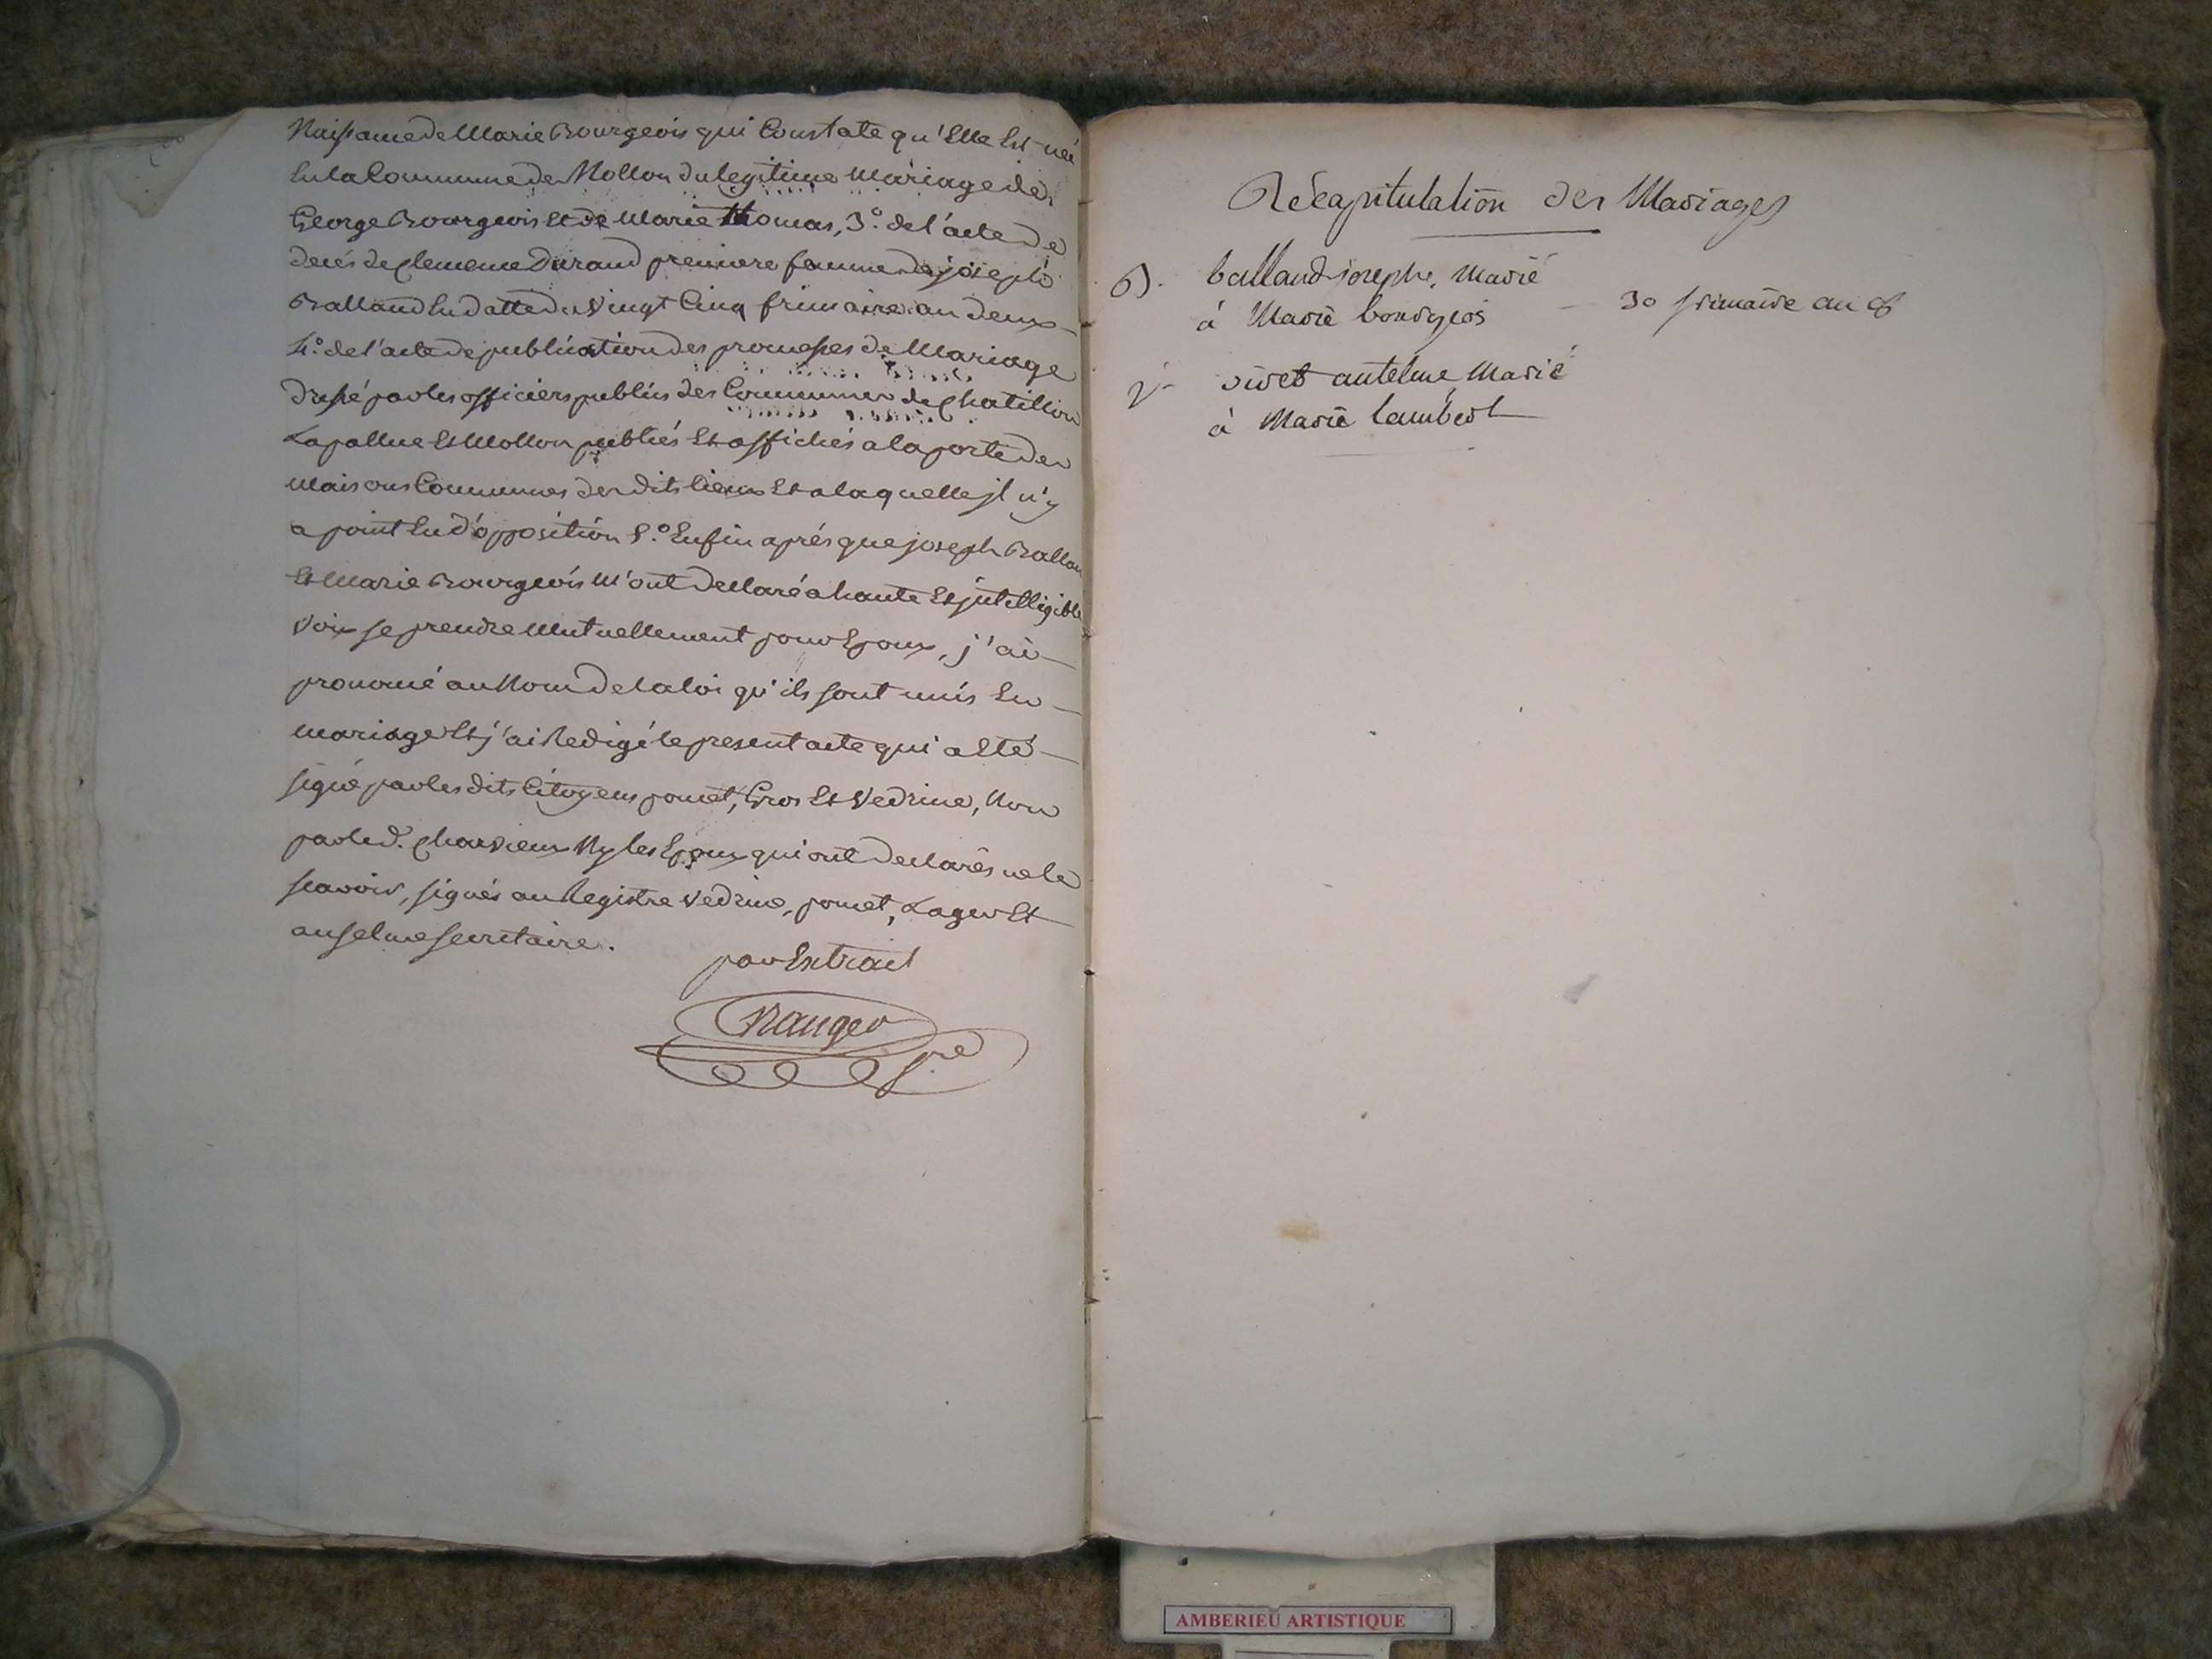 Naissance de Marie Bourgeois qui Constate qu'Elle Est née
En la Commune de Mollon du legitime mariage de
George Bourgeois Et de Marie thomas, 3.° de l'acte de
decés de Clemence Durand premiere femme de joseph
Balland En datte du Vingt Cinq frimaire an deux
4.° de l'acte de publication des promesses de Mariage
Dressé par les officiers publics des Communes de Chatillon
Lapallue Et Mollon publiés Et affichés a la porte des
maisons Communes des dits lieux Et a laquelle jl n'y
a point Eu d'opposition 5.° Enfin aprés que joseph Ballan
Et Marie Bourgeois M'ont declaré a haute Et jntelligible
Voix se prendre Mutuellement pour Epoux, j'ai
prononcé au Nom de la loi qu'ils sont unis En
mariage Et j'ai Redigé le present acte qui a Eté
signé par les dits Citoyens pomet, Gros Et Vedrine, Non
par led. Charvieux Ny les Epoux qui ont declarés ne le
scavoir, signés au Registre Vedrine, pomet, Lager Et
anselme secretaire.
par Extrait
Nauger
sre
Récapitulation des Mariages
balland josephe, Marié
à Marie bourgeois — 30 frimaire an 8
vivet antelme Marié
à Marie lambert
AMBERIEU ARTISTIQUE